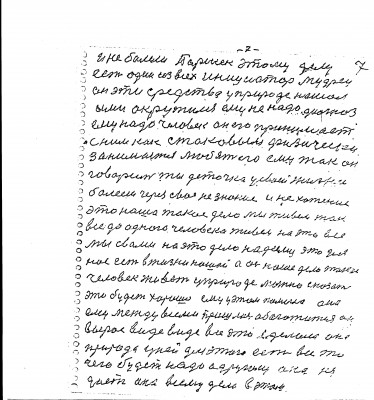 -2-
7
и не больше Паршек этому делу
есть один со всех инициатор мудрец
он эти средства у природе нашол
ыми окружился ему не надо диогноз
ему надо человек он его принимаеть
с ним как стоковым физическ
занимается любя того ему так он
говорить ти деточка у своей жизни
болееш через свое не знание и не хотение
это наша такое дело ми живем так
все до одного человека живем на это все
ми с вами на это дело надеемся это
ное есть в жизни нашой а он наше дело такое
человек живет у природе можно сказат
это будет хорошо ему у этом помога она
ему между всеми пришлись обогатится он
виде виде все это сделала она
природа у ней для этого есть все то
чего будет надо одному она не
дает она всему дело в этом.